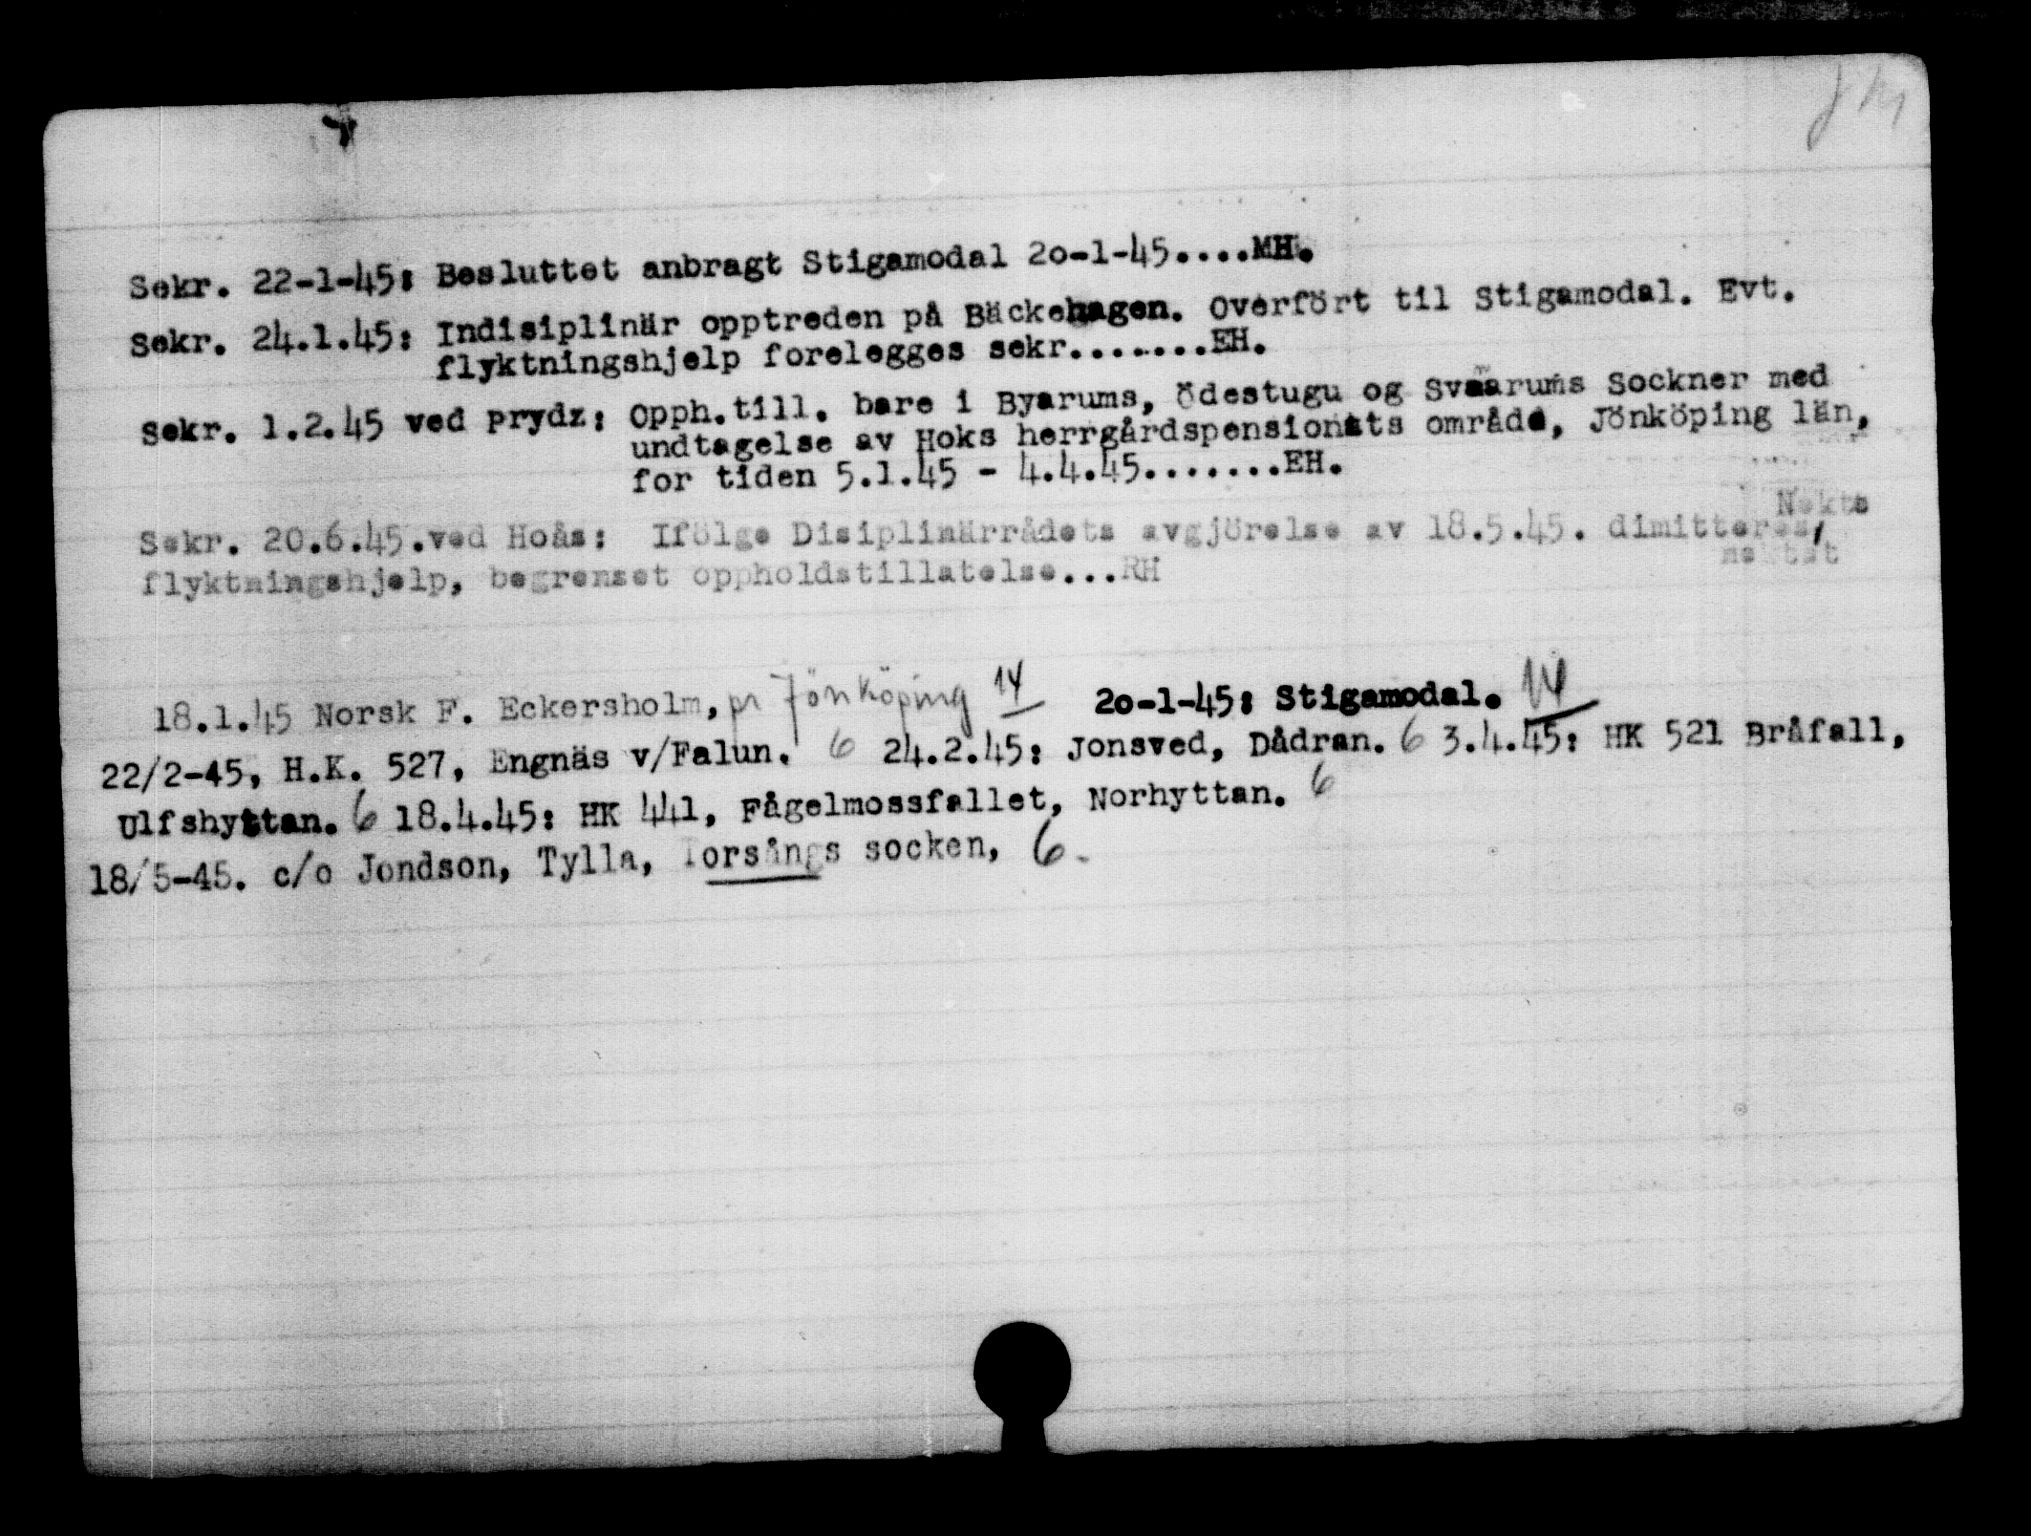 Sekr. 22-1-45: Besluttet anbragt Stigamodal 20-1-45....MH.
Sekr. 24.1.45: Indisiplinär opptreden på Bäckehagen. Overfört til Stigamodal. Evt.
flyktningshjelp forelegges sekr.......EH.
Sekr. 1.2.45 ved Prydz: Opph.till. bare i Byarums, Ödestugu og Svaarums Sockner med
undtagelse av Hoks herrgårdspensionats område, Jönköping län,
for tiden 5.1.45 - 4.4.45.......EH.
Nekte
Sekr. 20.6.45.ved Hoås: Ifölge Disiplinärrådets avgjörelse av 18.5.45. dimitteres,
nektet
flyktningshjelp, begrenset oppholdstillatelse...RH
18.1.45 Norsk F. Eckersholm, pr Jönköping 14 20-1-45: Stigamodal. 14
22/2-45, H.K. 527, Engnäs v/Falun. 6 24.2.45: Jonsved, Dådran. 6 3.4.45: HK 521 Bråfall,
Ulfshyttan. 6 18.4.45: HK 441, Fågelmossfallet, Norhyttan. 6
18/5-45. c/o Jondson, Tylla, Torsångs socken, 6.